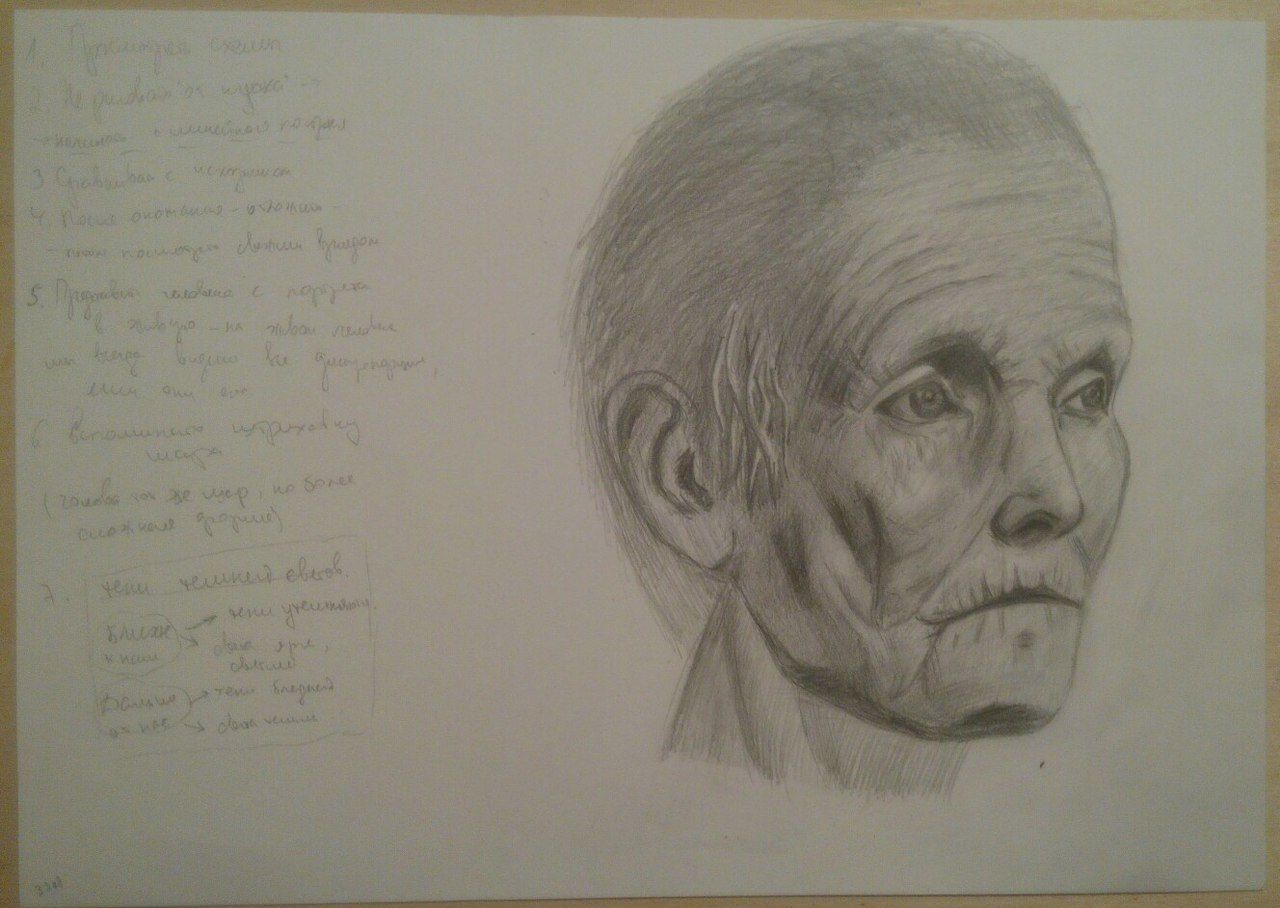 1. Просмотреть схемы
2. Не рисовать "от куска" →
→ начинаю с линейного построя
3 Сравниваем с исходником
4. После окончания – отложим –
– потом посмотреть свежим взглядом
5. Представить человека с портрета
в живую – на живом человеке
мы всегда видим все диспропорции,
если они есть
6 Вспоминаем штриховку
шара
(голова так же шар, но более
сложная форма)
7. тени темней светов.
Ближе к нам → тени
→ света ярче,
светлее
Дальше от нас → тени бледней
→ света темнее